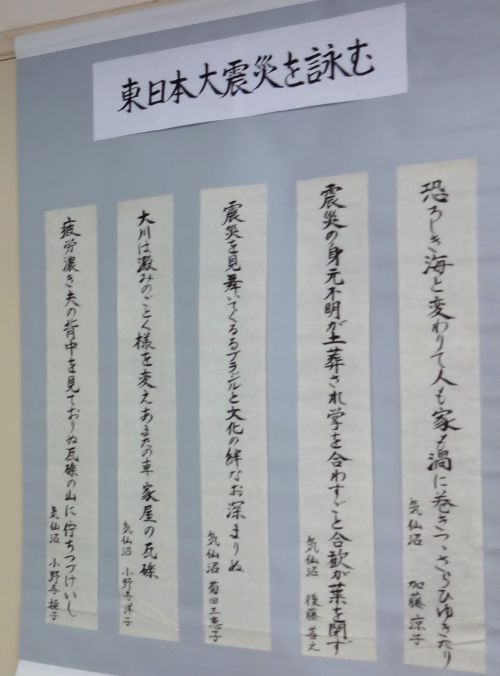 東日本大震災を詠む
恐ろしき海と変わりて人も家も渦に巻きつつさらひゆきたり
気仙沼 加藤 涼子
震災の身元不明が土葬され学を合わすごと合歓が葉を閉ず
気仙沼 後藤 善之
震災を見舞いくるるブラジルと文化の絆なお深まりぬ
気仙沼 菊田 恵子
大川は澱みのごとく様を変えあまたの車 家屋の瓦礫
気仙沼 小野寺 洋子
疲労濃き夫の背中を見ておりぬ瓦礫の山に佇ちつづけいし
気仙沼 小野寺 子